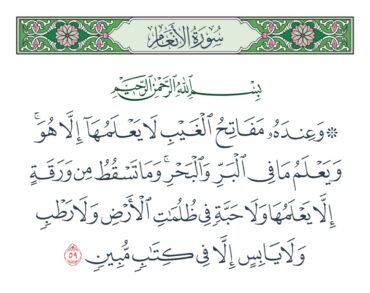 سُورَةُ الأَنْعَامِ
بِسْمِ اللَّهِ الرَّحْمَٰنِ الرَّحِيمِ
۞ وَعِندَهُۥ مَفَاتِحُ ٱلْغَيْبِ لَا يَعْلَمُهَآ إِلَّا هُوَۚ
وَيَعْلَمُ مَا فِى ٱلْبَرِّ وَٱلْبَحْرِۚ وَمَا تَسْقُطُ مِن وَرَقَةٍ
إِلَّا يَعْلَمُهَا وَلَا حَبَّةٍ فِى ظُلُمَٰتِ ٱلْأَرْضِ وَلَا رَطْبٍ
وَلَا يَابِسٍ إِلَّا فِى كِتَٰبٍ مُّبِينٍ ٥٩